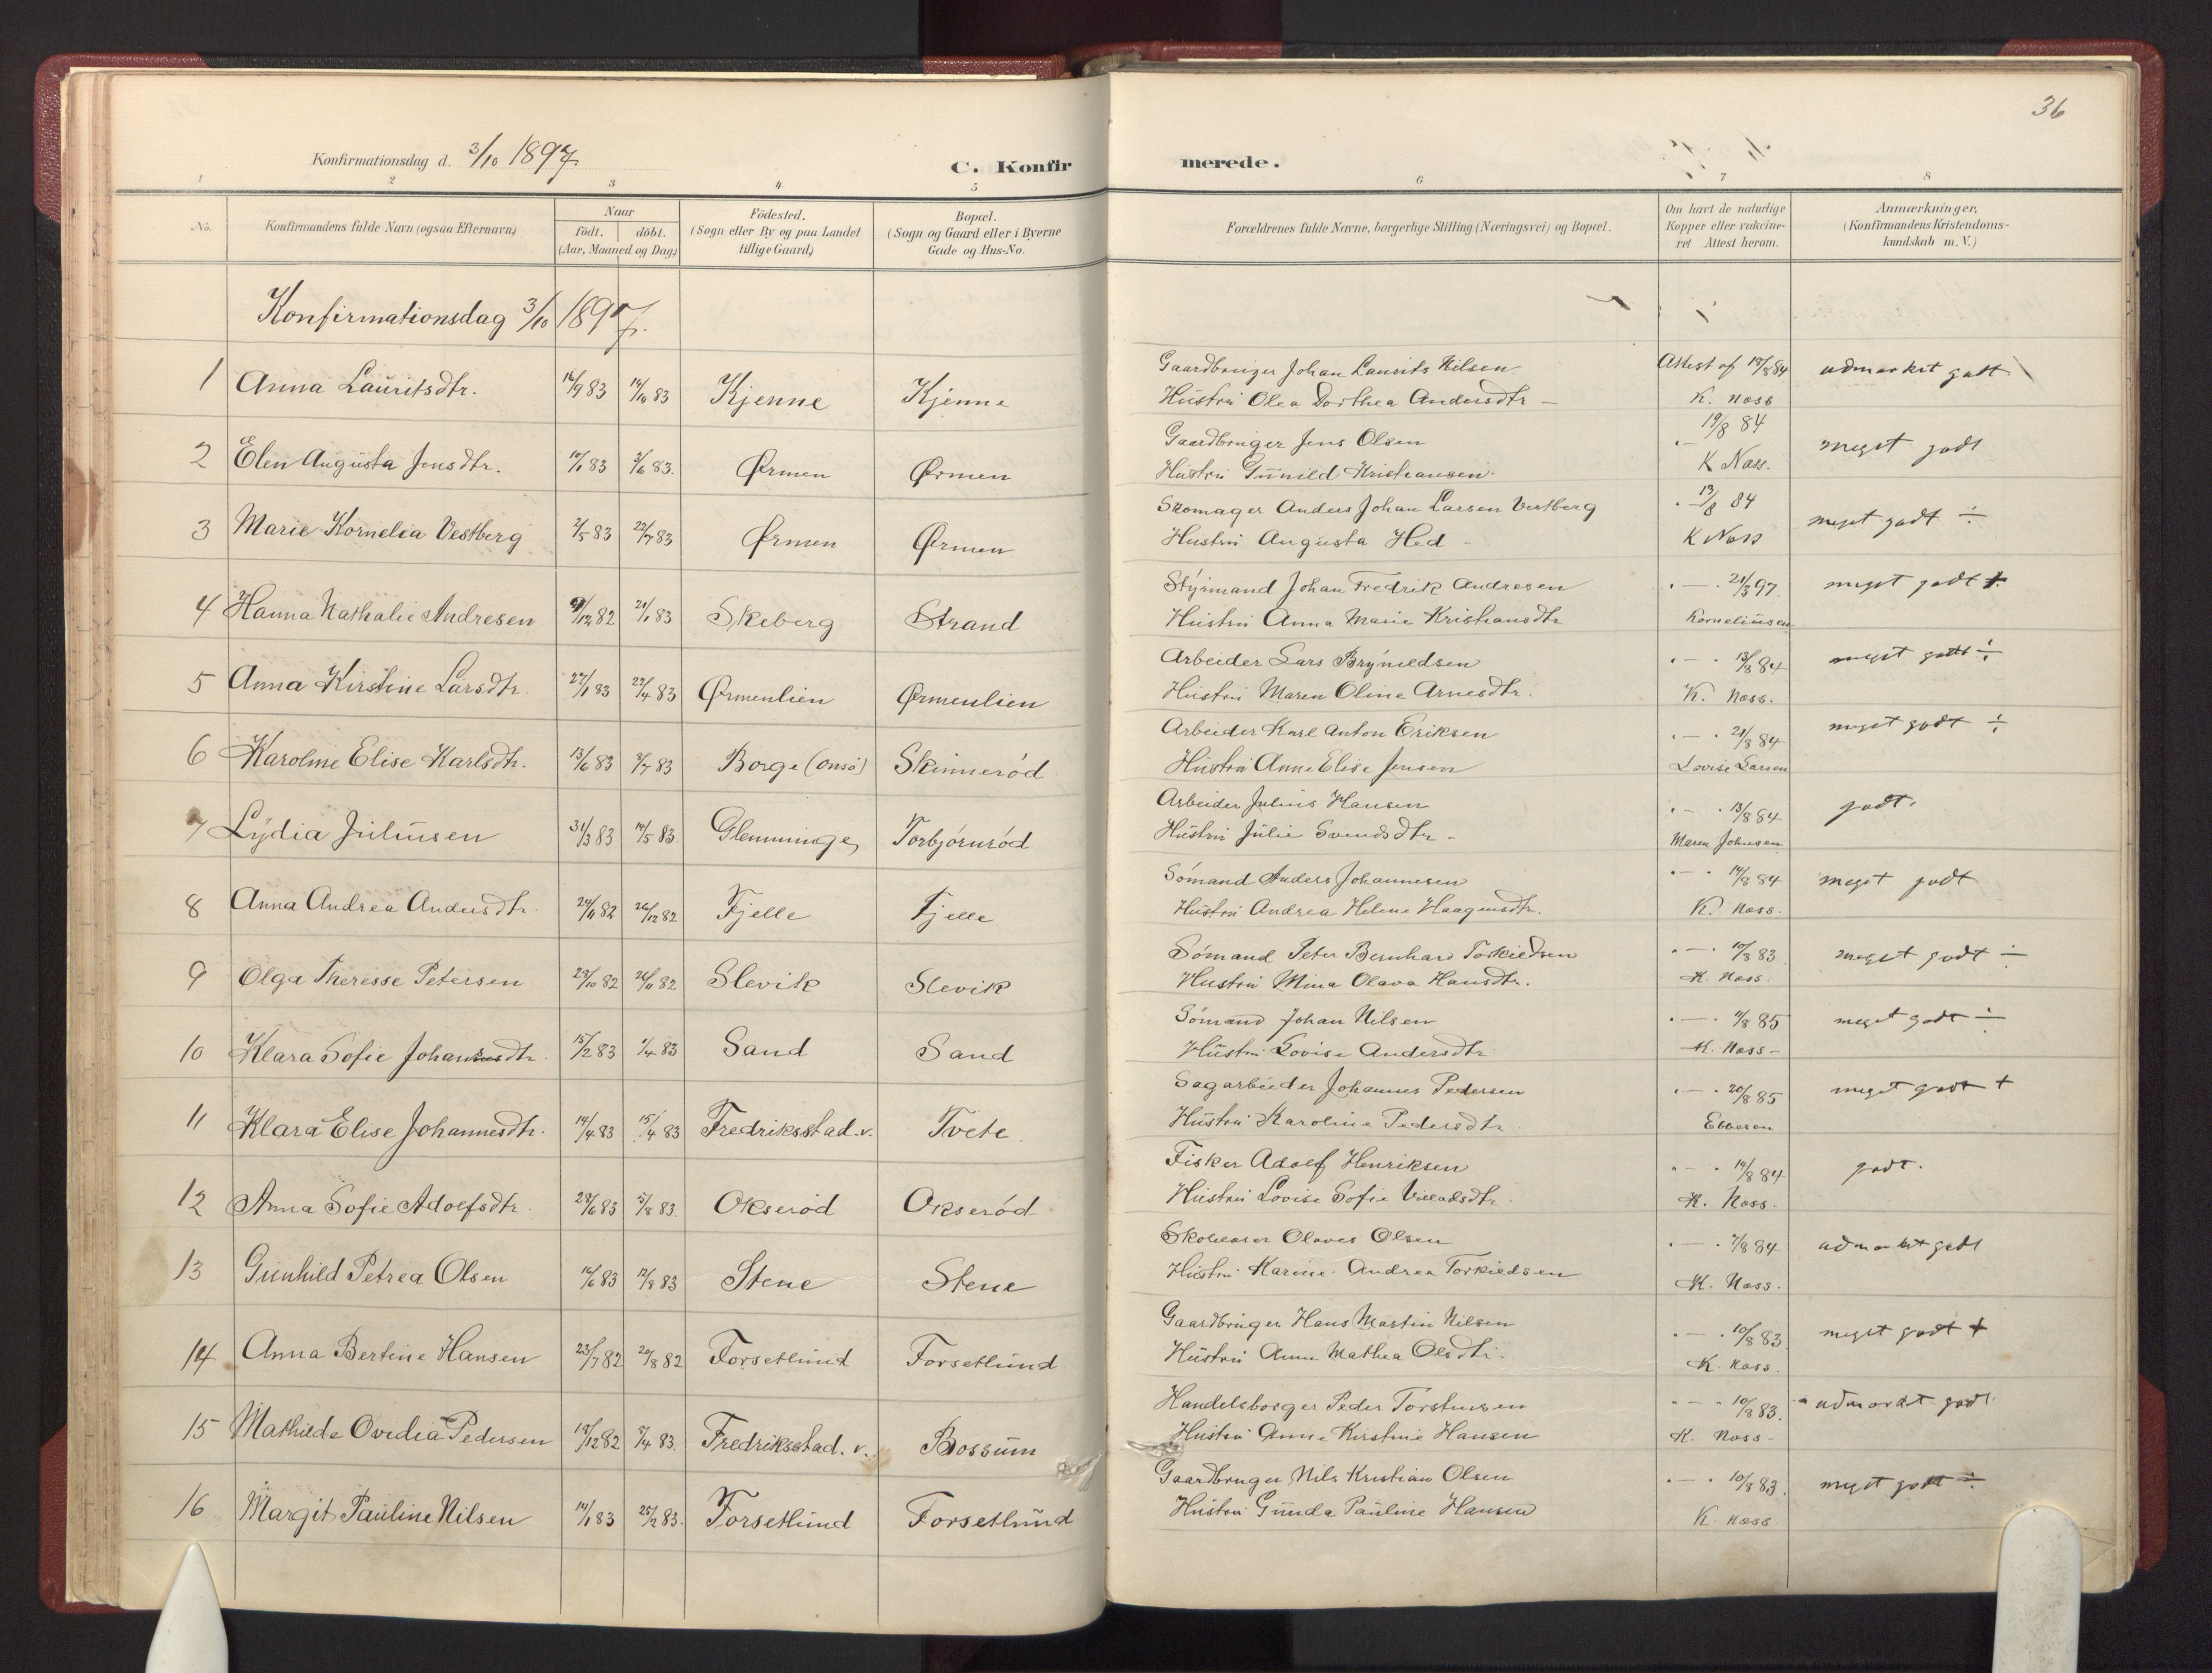 36
Konfirmationsdag d. 3/10 1897.
C. Konfirmerede.
1 2 3 4 5 6 7 8
No. Konfirmandens fulde Navn (ogsaa Efternavn) Naar födt. döbt. (Aar, Maaned og Dag) Födested. (Sogn eller By og paa Landet tillige Gaard) Bopæl. (Sogn og Gaard eller i Byerne Gade og Hus-No. Forældrenes fulde Navne, borgerlige Stilling (Næringsvei) og Bopæl. Om havt de naturlige Kopper eller vakcineret Attest herom. Anmærkninger. (Konfirmandens Kristendomskundskab m. V.)
Konfirmationsdag 3/10 1897.
1 Anna Lauritsdtr. 16/9 83 14/10 83 Kjenne Kjenne Gaardbruger Johan Laurits Nilsen Attest af 13/8 84 udmærket godt
Hustru Olea Dorthea Andersdtr – K. Næss
2 Elen Augusta Jensdtr. 3/6 83. Ørmen Ørmen Gaardbruger Jens Olsen 19/8 84 meget godt
Hustru Gunild Kristiansen. K Næss.
3 Marie Kornelia Vestberg 2/5 83 22/7 83 Ørmen Ørmen Skomager Anders Johan Larsen Vestberg 13/8 84 meget godt ÷
Hustru Augusta Hed – K Næss
4 Hanna Nathalie Andresen 82 21/1 83 Skeberg Strand Styrmand Johan Fredrik Andresen " — " 21/3 97. meget godt +
Hustru Anna Marie Kristiansdtr Korneliusen
5 Anna Kirstine Larsdtr. 27/1 83 22/4 83 Ørmenlien Ørmenlien Arbeider Lars Brynildsen " — " 13/8 84 meget godt ÷
Hustru Maren Oline Arnesdtr. K. Næss.
6 Karoline Elise Karlsdtr. 13/6 83 8/7 83 Borge (Onsø) Skinnerød Arbeider Karl Anton Eriksen " — " 21/8 84 meget godt ÷
Hustru Anne Elise Jensen Lovise Larsen
7 Lydia Juliusen 31/3 83 14/5 83. Glemminge Torbjørnrød Arbeider Julius Hansen " — " 13/8 84 godt.
Hustru Julie Svendsdtr – Maren Johnsen
8 Anna Andrea Andersdtr. 24/11 82 26/12 82 Fjelle Fjelle Sømand Anders Johannesen " — " 14/8 84 meget godt
Hustru Andrea Helene Haagensdtr. K. Næss.
9 Olga Theresse Petersen 23/10 82 26/11 82 Slevik Slevik Sømand Peter Bernhard Torkildsen " — " 10/8 83 meget godt ÷
Hustru Mina Olava Hansdtr. K. Næss.
10 Klara Sofie Johansdtr. 15/2 83 1/4 83 Sand Sand Sømand Johan Nilsen " — " 11/8 85 meget godt ÷
Hustru Lovise Andersdtr K. Næss –
11 Klara Elise Johannesdtr. 14/4 83 15/4 83 Fredriksstad. v. Tvete Sagarbeider Johannes Pedersen " — " 20/8 85 meget godt +
Hustru Karoline Pedersdtr. Ebbesen
12 Anna Sofie Adolfsdtr. 28/6 83 5/8 83. Okserød Okserød Fisker Adolf Henriksen " — " 14/8 84 godt.
Hustru Lovise Sofie Villadsdtr. K. Næss.
13 Gunhild Petrea Olsen 16/6 83 12/8 83 Stene Stene Skolelærer Olaves Olsen " — " 7/8 84 udmærket godt
Hustru Karine Andrea Torkildsen K. Næss.
14 Anna Bertine Hansen 23/7 82 27/8 82 Forsetlund Forsetlund Gaardbruger Hans Martin Nilsen " — " 10/8 83 meget godt +
Hustru Anne Mathea Olsdtr. K. Næss.
15 Mathilde Ovidia Pedersen 82 83. Fredriksstad. v. Bossum Handelsborger Peder Torstensen " — " 10/8 83. udmærket godt
Hustru Anne Kirstine Hansen K. Næss –
16 Margit Pauline Nilsen 14/1 83 25/2 83. Forsetlund Forsetlund Gaardbruger Nils Kristian Olsen " — " 10/8 83. meget godt ÷
Hustru Gunda Pauline Hansen K. Næss